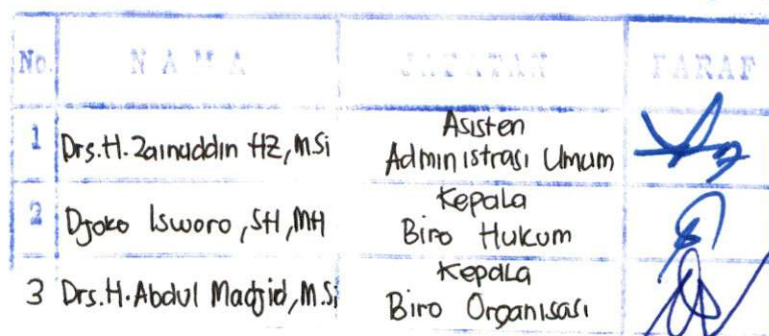 No. NAMA JABATAN PARAF
1 Drs.H.Zainuddin HZ, M.Si Asisten Administrasi Umum
2 Djoko Isworo, SH, MH Kepala Biro Hukum
3 Drs.H.Abdul Madjid, M.Si Kepala Biro Organisasi